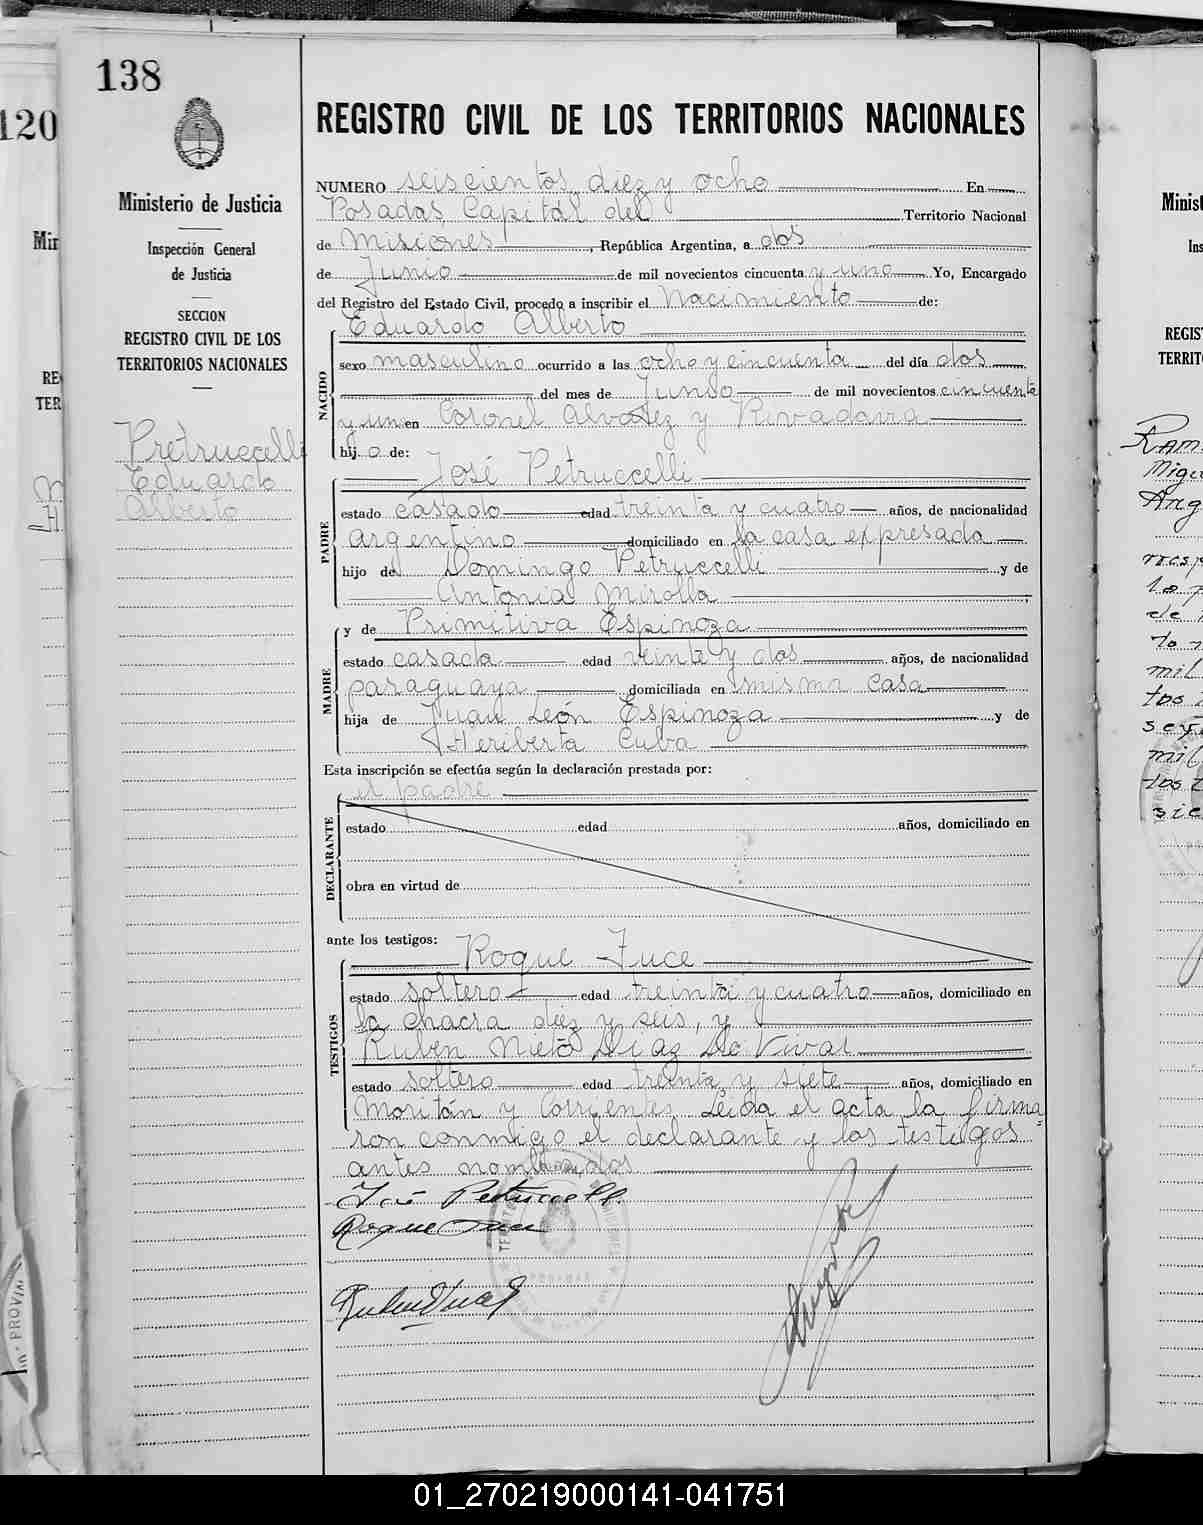 138
120
Ministerio de Justicia
Inspección General
de Justicia
SECCION
REGISTRO CIVIL DE LOS
TERRITORIOS NACIONALES
Pretruccelli
Eduardo
Alberto
REGISTRO CIVIL DE LOS TERRITORIOS NACIONALES
NUMERO seiscientos diez y ocho En
Posadas Capital del Territorio Nacional
de Misiones, República Argentina, a dos
de Junio de mil novecientos cincuenta y uno Yo, Encargado
del Registro del Estado Civil, procedo a inscribir el Nacimiento de:
Eduardo Alberto
NACIDO
sexo masculino ocurrido a las ocho y cincuenta del día dos
del mes de Junio de mil novecientos cincuenta
y uno en Coronel Alvarez y Rivadavia
hijo de:
José Petruccelli
PADRE
estado casado edad treinta y cuatro años, de nacionalidad
argentino domiciliado en la casa expresada
hijo de Domingo Petruccelli y de
Antonia Mirolla
y de Primitiva Espinoza
MADRE
estado casada edad veinte y dos años, de nacionalidad
paraguaya domiciliada en misma casa
hija de Juan León Espinoza y de
Heriberta Cuba
Esta inscripción se efectúa según la declaración prestada por:
el padre
DECLARANTE
estado edad años, domiciliado en
obra en virtud de
ante los testigos:
Roque Fuce
TESTIGOS
estado soltero edad treinta y cuatro años, domiciliado en
la chacra diez y seis, y
Ruben Nieto Diaz De Vivar
estado soltero edad treinta y siete años, domiciliado en
Moritán y Corrientes. Leida el acta la firma=
ron conmigo el declarante y los testigos
antes nombrados
José Petruccelli
Roque Fuce
01_270219000141-041751